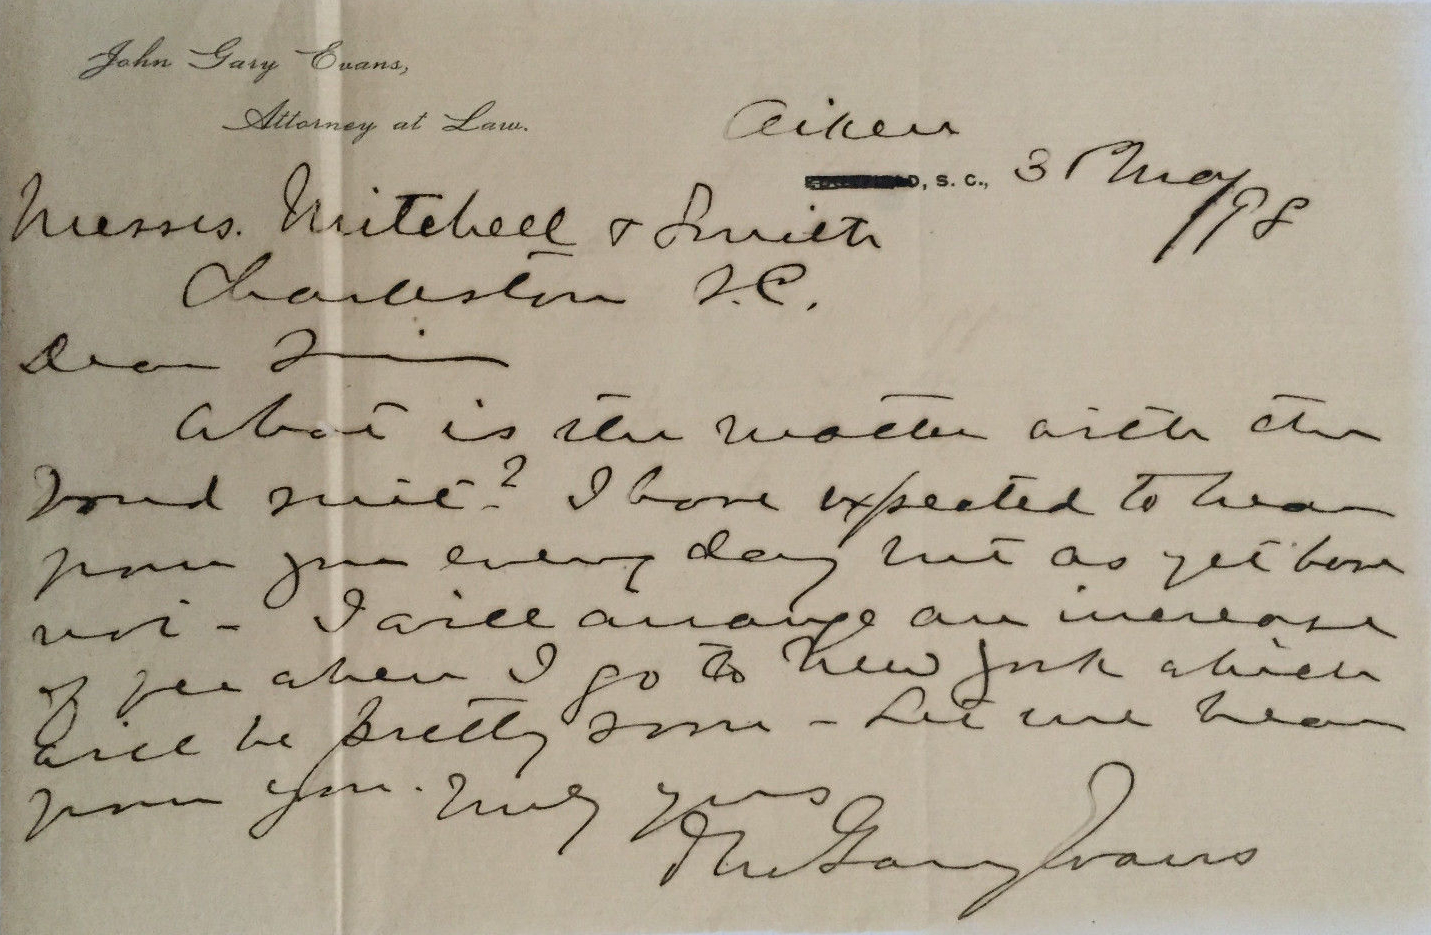 John Gary Evans,
Attorney at Law.
Aiken
D, S. C., 3 May/98
Messrs. Mitchell & Smith
Charleston S.C.
Dear Sirs
What is the matter with the
bond suit? I have expected to hear
from you every day but as yet have
not - I will arrange an increase
of fee when I go to New York which
will be pretty soon - Let me hear
from you. Truly yours
Jno Gary Evans